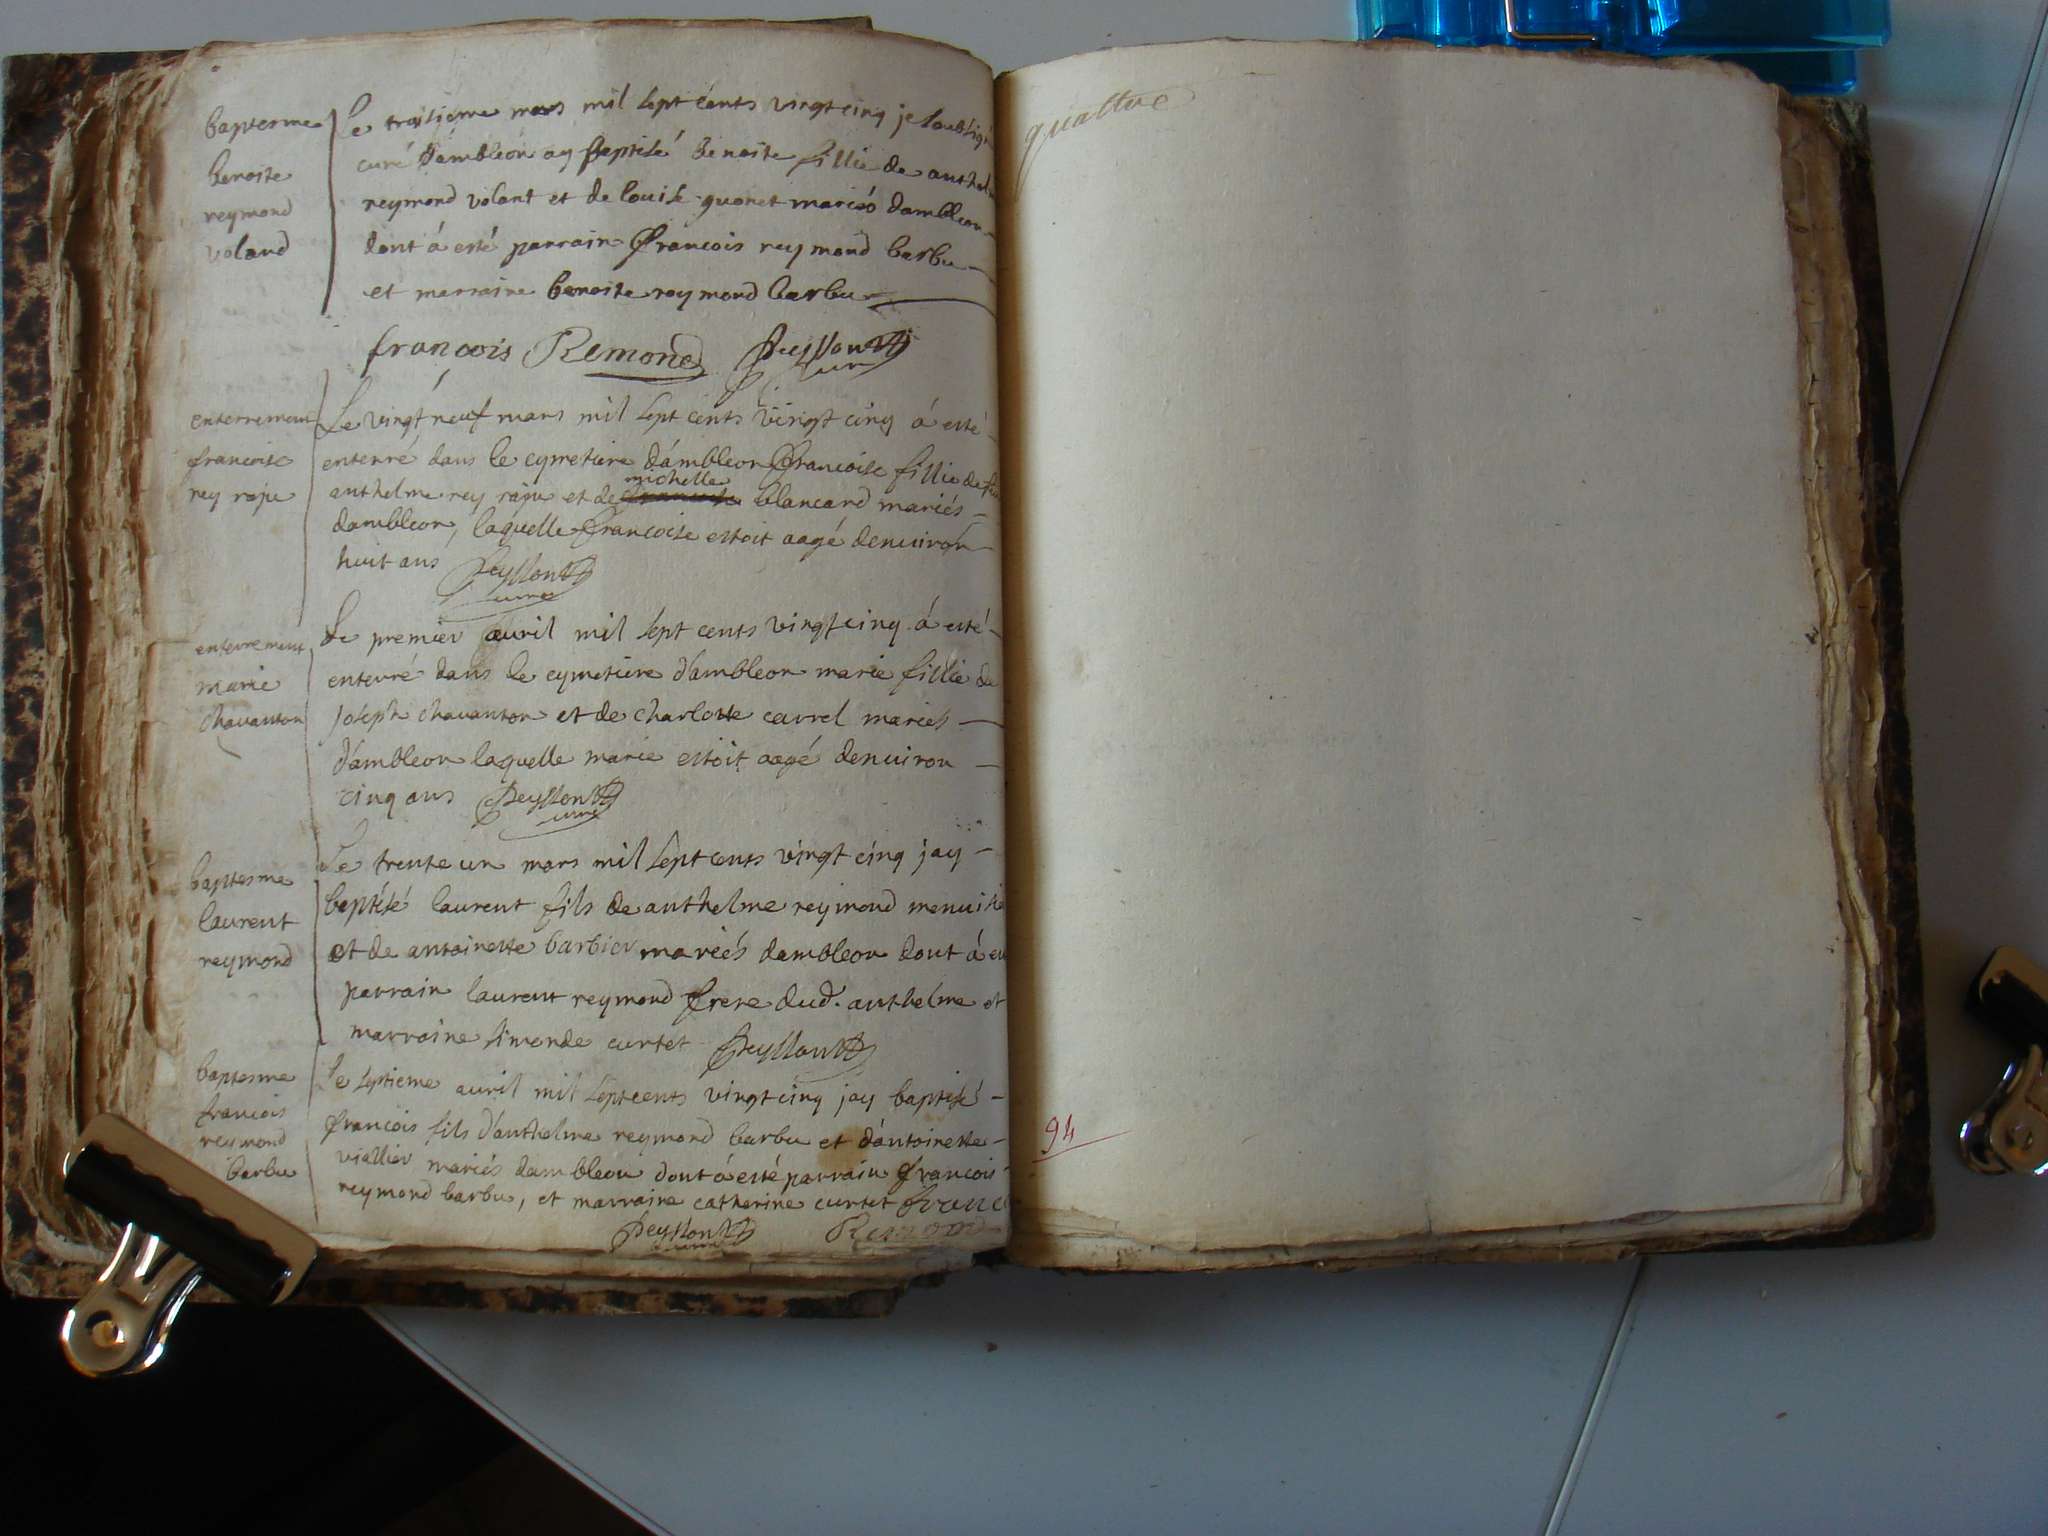 baptesme
benoite
reymond
voland
Le troisieme mars mil sept cents vingt cinq je soubsigné
curé dámbleon ay baptisé benoite fillie de anthelme
reymond volant et de louise guonet mariés dambleon
dont á esté parrain francois reymond barbu
et marraine benoite reymond barbu
francois Remond
curé
enterrement
francoise
rey raju
Le vingt neuf mars mil sept cents vingt cinq á esté
enterré dans le cymetiere dámbleon francoise fillie de feu
anthelme rey raju et de michelle blancard mariés
dambleon, laquelle francoise estoit aagé denuiron
huit ans
curé
enterrement
marie
chavanton
Le premier auril mil sept cents vingt cinq á esté
enterré dans le cymetiere dámbleon marie fillie de
joseph chavanton et de charlotte carrel mariés
dámbleon laquelle marie estoit aagé denuiron
cinq ans
curé
baptesme
laurent
reymond
Le trente un mars mil sept cents vingt cinq jay
baptisé laurent fils de anthelme reymond menuisie
et de antoinette barbier mariés dambleon dont á es
parrain laurent reymond frere dud. anthelme et
marraine simonde curtet
baptesme
francois
reymond
barbu
Le septieme auril mil sept cents vingt cinq jay baptisé
francois fils d'anthelme reymond barbu et dántoinette
viallier mariés dambleon dont á esté parrain francois
reymond barbu, et marraine catherine curtet franc
Remond
quattre
94